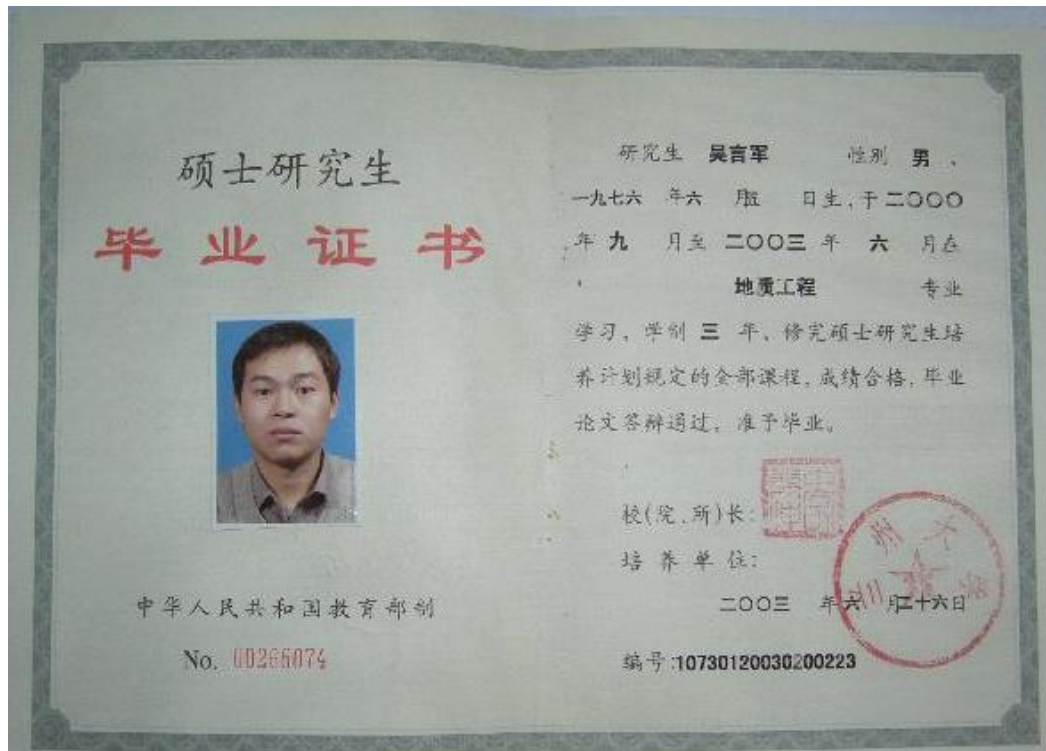 硕士研究生
毕业证书
中华人民共和国教育部制
No. 00265074
研究生 吴言军 性别 男、
一九七六 年六 月五 日生,于二〇〇〇
年 九 月至 二〇〇三 年 六 月在
地质工程 专业
学习,学制 三 年、修完硕士研究生培
养计划规定的全部课程,成绩合格,毕业
论文答辩通过,准予毕业。
校(院、所)长:
培 养 单 位:
兰州大学
二〇〇三 年六 月二十六日
编号:10730120030200223